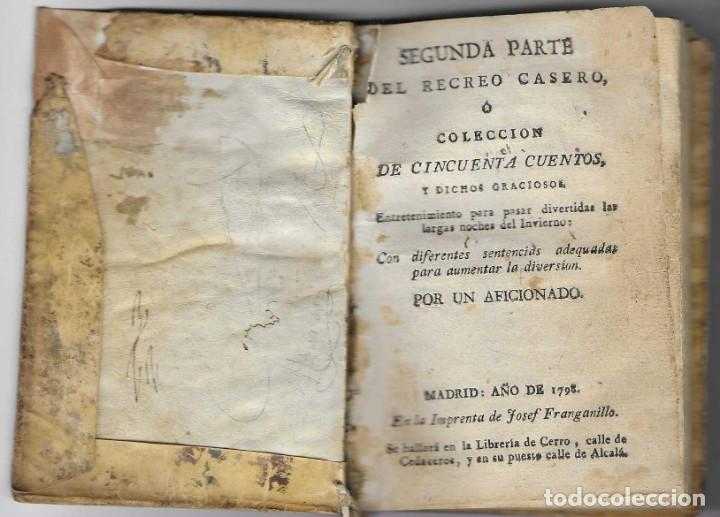 SEGUNDA PARTE
DEL RECREO CASERO,
Ó
COLECCION
DE CINCUENTA CUENTOS,
Y DICHOS GRACIOSOS.
Entretenimiento para pasar divertidas las
largas noches del Invierno:
Con diferentes sentencias adequadas
para aumentar la diversion.
POR UN AFICIONADO.
MADRID: AÑO DE 1798.
En la Imprenta de Josef Franganillo.
Se hallará en la Librería de Cerro, calle de
Cedaceros, y en su puesto calle de Alcalá.
todocoleccion